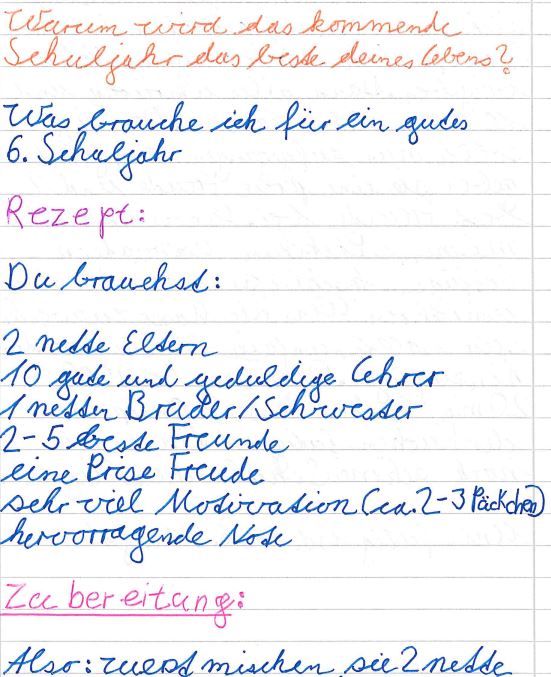 Warum wird das kommende
Schuljahr das beste deines Lebens?
Was brauche ich für ein gutes
6. Schuljahr
Rezept:
Du brauchst:
2 nette Eltern
10 gute und geduldige Lehrer
1 netten Bruder/Schwester
2-5 beste Freunde
eine Prise Freude
sehr viel Motivation (ca. 2-3 Päckchen)
hervorragende Note
Zubereitung:
Also: zuerst mischen sie 2 nette